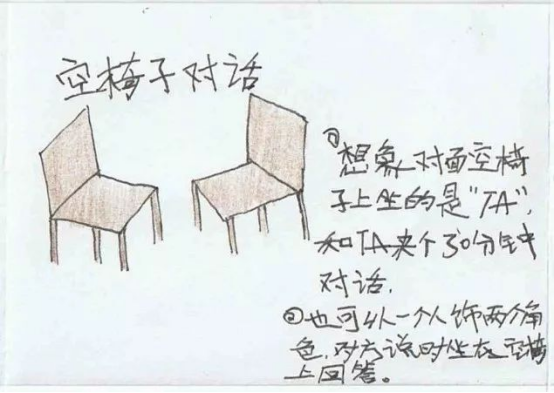 空椅子对话
①想象对面空椅
子上坐的是“TA”,
和TA来个30分钟
对话.
②也可以一个人饰两个角
色,对方说时坐在空椅
上回答。